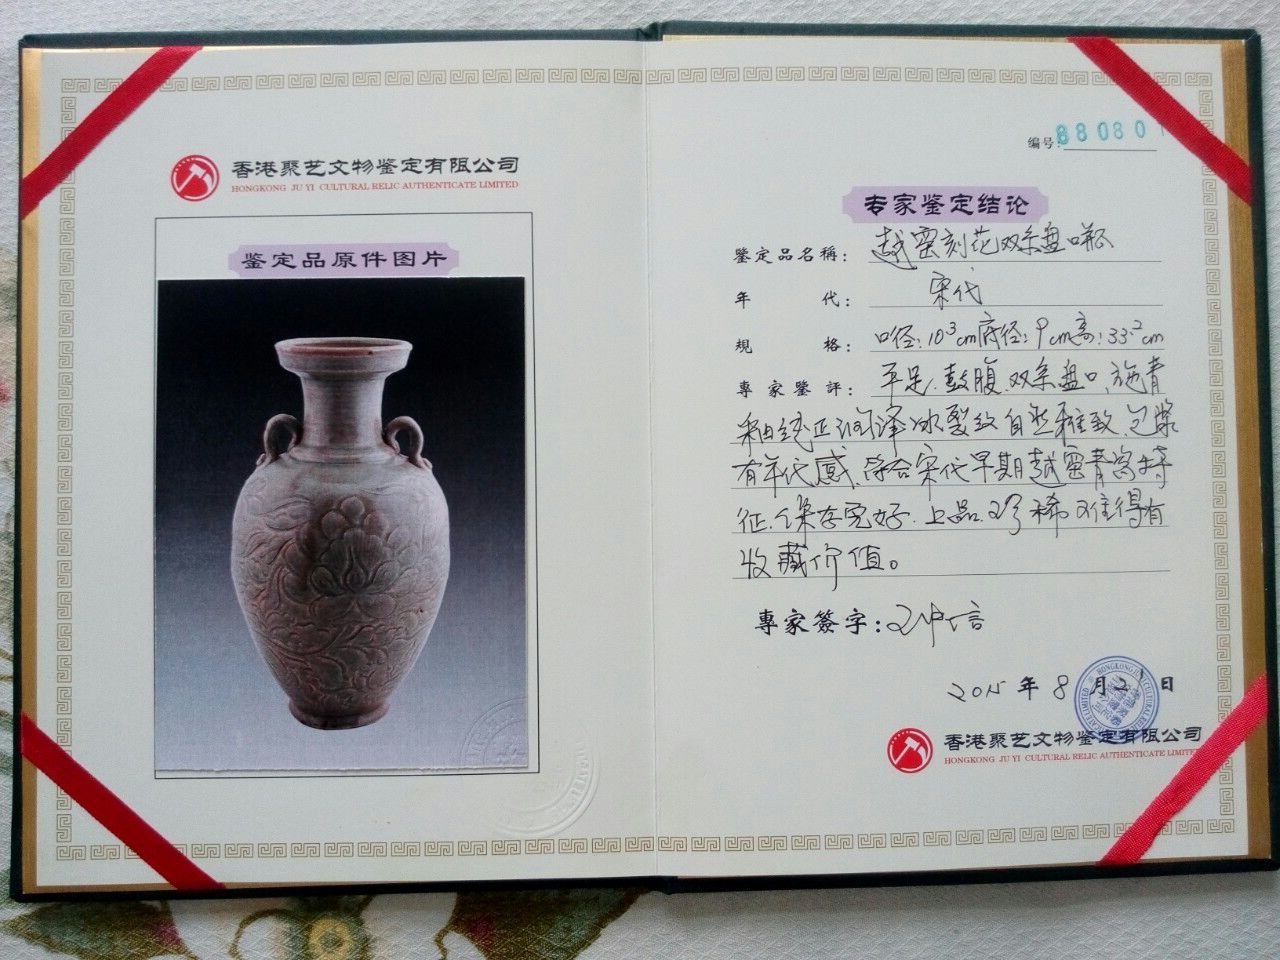 香港聚艺文物鉴定有限公司
HONGKONG JU YI CULTURAL RELIC AUTHENTICATE LIMITED
鉴定品原件图片
编号: 880801
专家鉴定结论
鑒定品名稱: 越窑刻花双系盘口瓶
年代: 宋代
規格: 口径:10·3cm底径:9cm高:33·2cm
專家鑒評: 平足.鼓腹.双系盘口、施青
釉纯正润泽冰裂纹自然雅致.包浆
有年代感.符合宋代早期越窑青瓷特
征.保存完好.上品.珍稀难得有
收藏价值。
專家簽字:
2015年8月2日
香港聚艺文物鉴定有限公司
HONGKONG JU YI CULTURAL RELIC AUTHENTICATE LIMITED